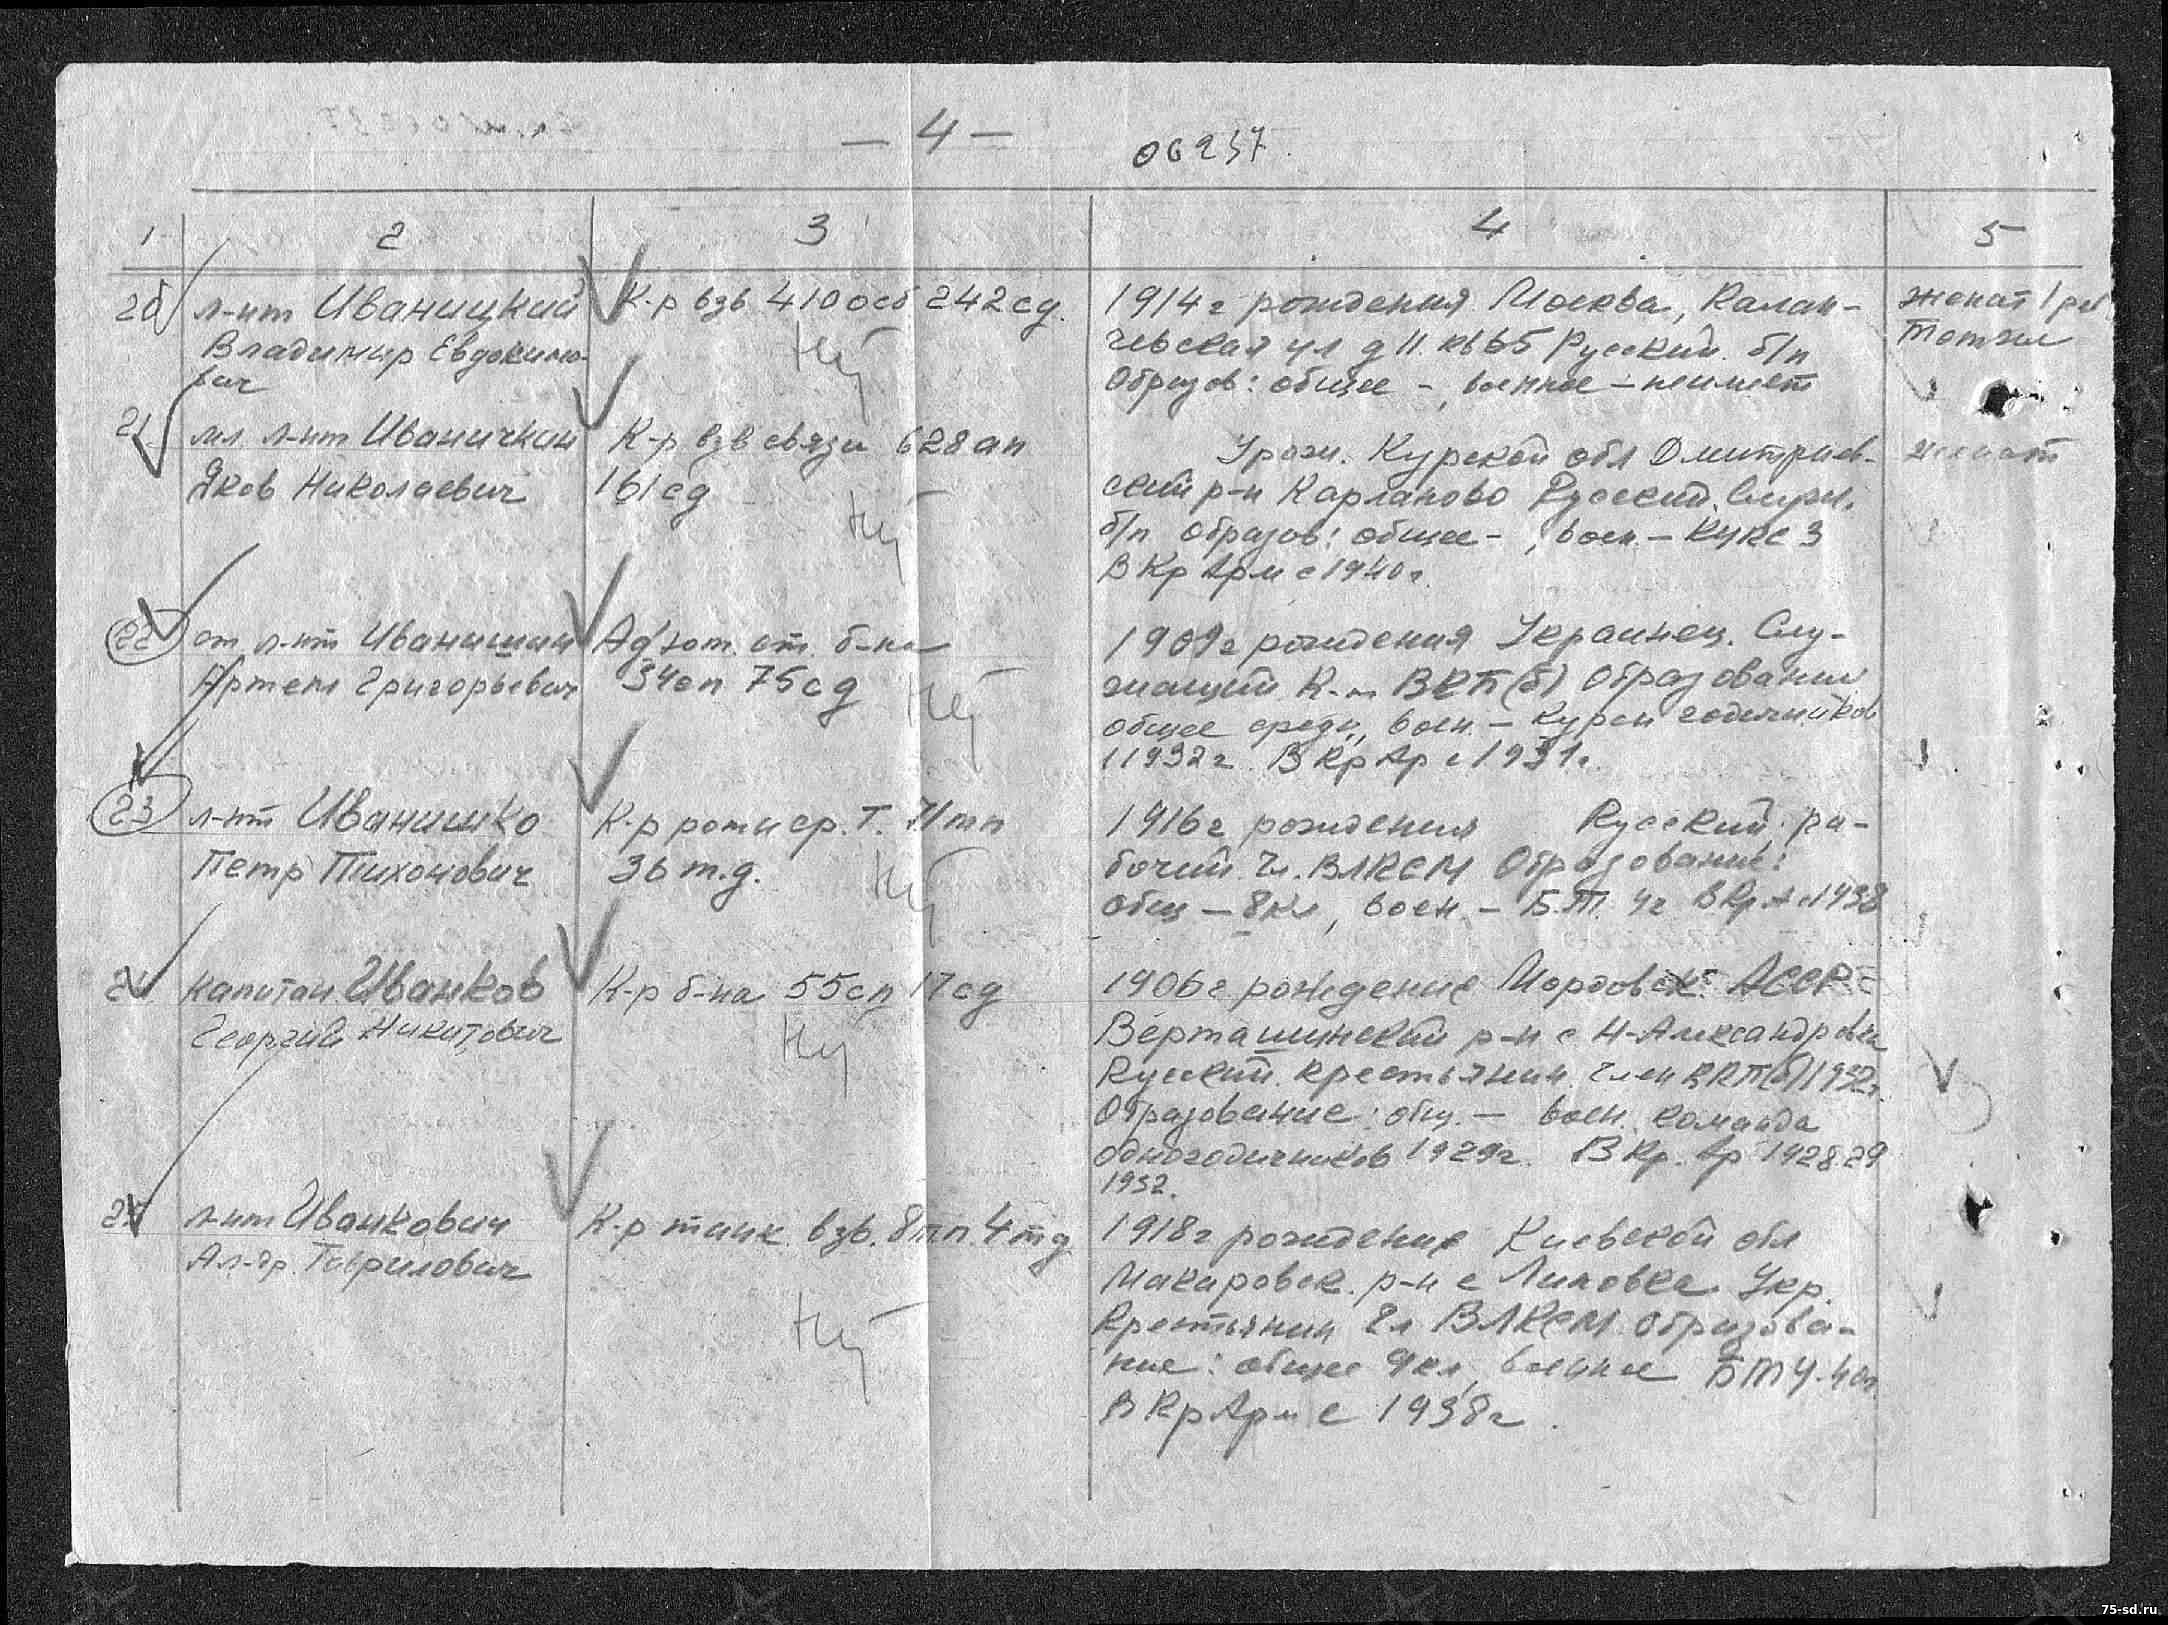 — 4 —
06237
1 2 3 4 5
20 л-нт Иваницкий К-р взв 410 осб 242 сд. 1914 г рождения Москва, Калан- женат 1 реб
Владимир Евдокимо- Ну чевская ул д 11. кв 65 Русский. б/п
вич Образов: общее -, военное - неимеет
21 мл л-нт Иваничкин К-р взв связи 628 ап Урож. Курской обл Дмитриев- женат
Яков Николаевич 161 сд ский р-н Карланово Русский. Служ.
Ну б/п образов: общее - , воен -
В Кр Арм с 1940 г.
22 ст л-нт Иванишин Адъют. ст. б-на 1909 г рождения Украинец. Слу-
Артем Григорьевич 34 сп 75 сд Ну жащий К-м ВКП(б) Образование
общее средн, воен - Курсы годичников
1932 г. В Кр Ар с 1931 г.
23 л-нт Иванишко К-р роты ср. Т. 71 тп 1916 г рождения Русский. ра-
Петр Тихонович 36 т.д. Ну бочий. Чл. ВЛКСМ Образование:
общ - 8 кл, воен. - Б.Т. Уч В Кр А с 1938
24 капитан Иванков К-р б-на 55 сп 17 сд 1906 г рождение Мордовск. АССР
Георгий Никитович Ну р-н с Н-Александровка
Русский. Крестьянин. Член ВКП(б) 1932 г.
Образование: общ. - воен. команда
одногодичников 1929 г. В Кр. Ар 1928-29
1932.
25 л-нт Иванкович К-р танк взв. 8 тп. 4 тд 1918 г рождение Киевской обл
Ал-др. Гаврилович Макаровск. р-н с Липовка Укр.
Ну Крестьянин Чл ВЛКСМ Образова-
ние: общее 9 кл, военное БТУ-40 г.
В Кр Арм с 1938 г.
75-sd.ru